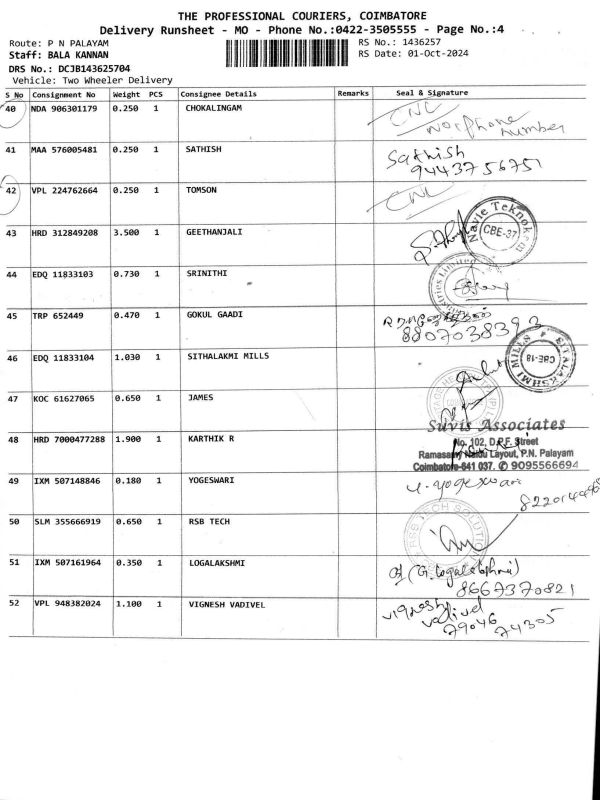 THE PROFESSIONAL COURIERS, COIMBATORE
Delivery Runsheet - MO - Phone No.:0422-3505555 - Page No.:4
Route: P N PALAYAM
RS No.: 1436257
Staff: BALA KANNAN
RS Date: 01-Oct-2024
DRS No.: DCJB143625704
Vehicle: Two Wheeler Delivery
S No Consignment No Weight PCS Consignee Details Remarks Seal & Signature
40 NDA 906301179 0.250 1 CHOKALINGAM
CNL
No phone
number
41 MAA 576005481 0.250 1 SATHISH
Sathish
9443756751
42 VPL 224762664 0.250 1 TOMSON
CNL
43 HRD 312849208 3.500 1 GEETHANJALI
Navie Teknokem
CBE-37
44 EDQ 11833103 0.730 1 SRINITHI
Limited
45 TRP 652449 0.470 1 GOKUL GAADI
8807038393
46 EDQ 11833104 1.030 1 SITHALAKMI MILLS
SITALAKSHMI MILLS
CBE-18
47 KOC 61627065 0.650 1 JAMES
48 HRD 7000477288 1.900 1 KARTHIK R
Suvis Associates
No. 102, D.P.F. Street
Ramasamy Naidu Layout, P.N. Palayam
Coimbatore-641 037. ✆ 9095566694
49 IXM 507148846 0.180 1 YOGESWARI
50 SLM 355666919 0.650 1 RSB TECH
RSB TECH SOLUTION
51 IXM 507161964 0.350 1 LOGALAKSHMI
8667370821
52 VPL 948382024 1.100 1 VIGNESH VADIVEL
vignesh
vadivel
79046
74305